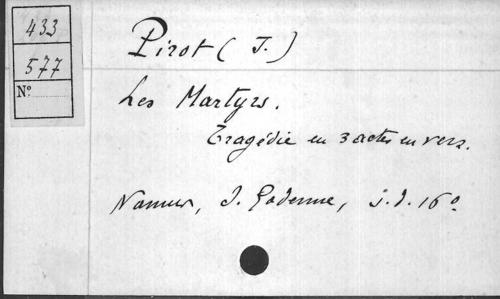 433
577
N°
Pirot (J.)
Les Martyrs.
Tragédie en 3 actes en vers.
Namur, J. Godenne, s.d. 16°.